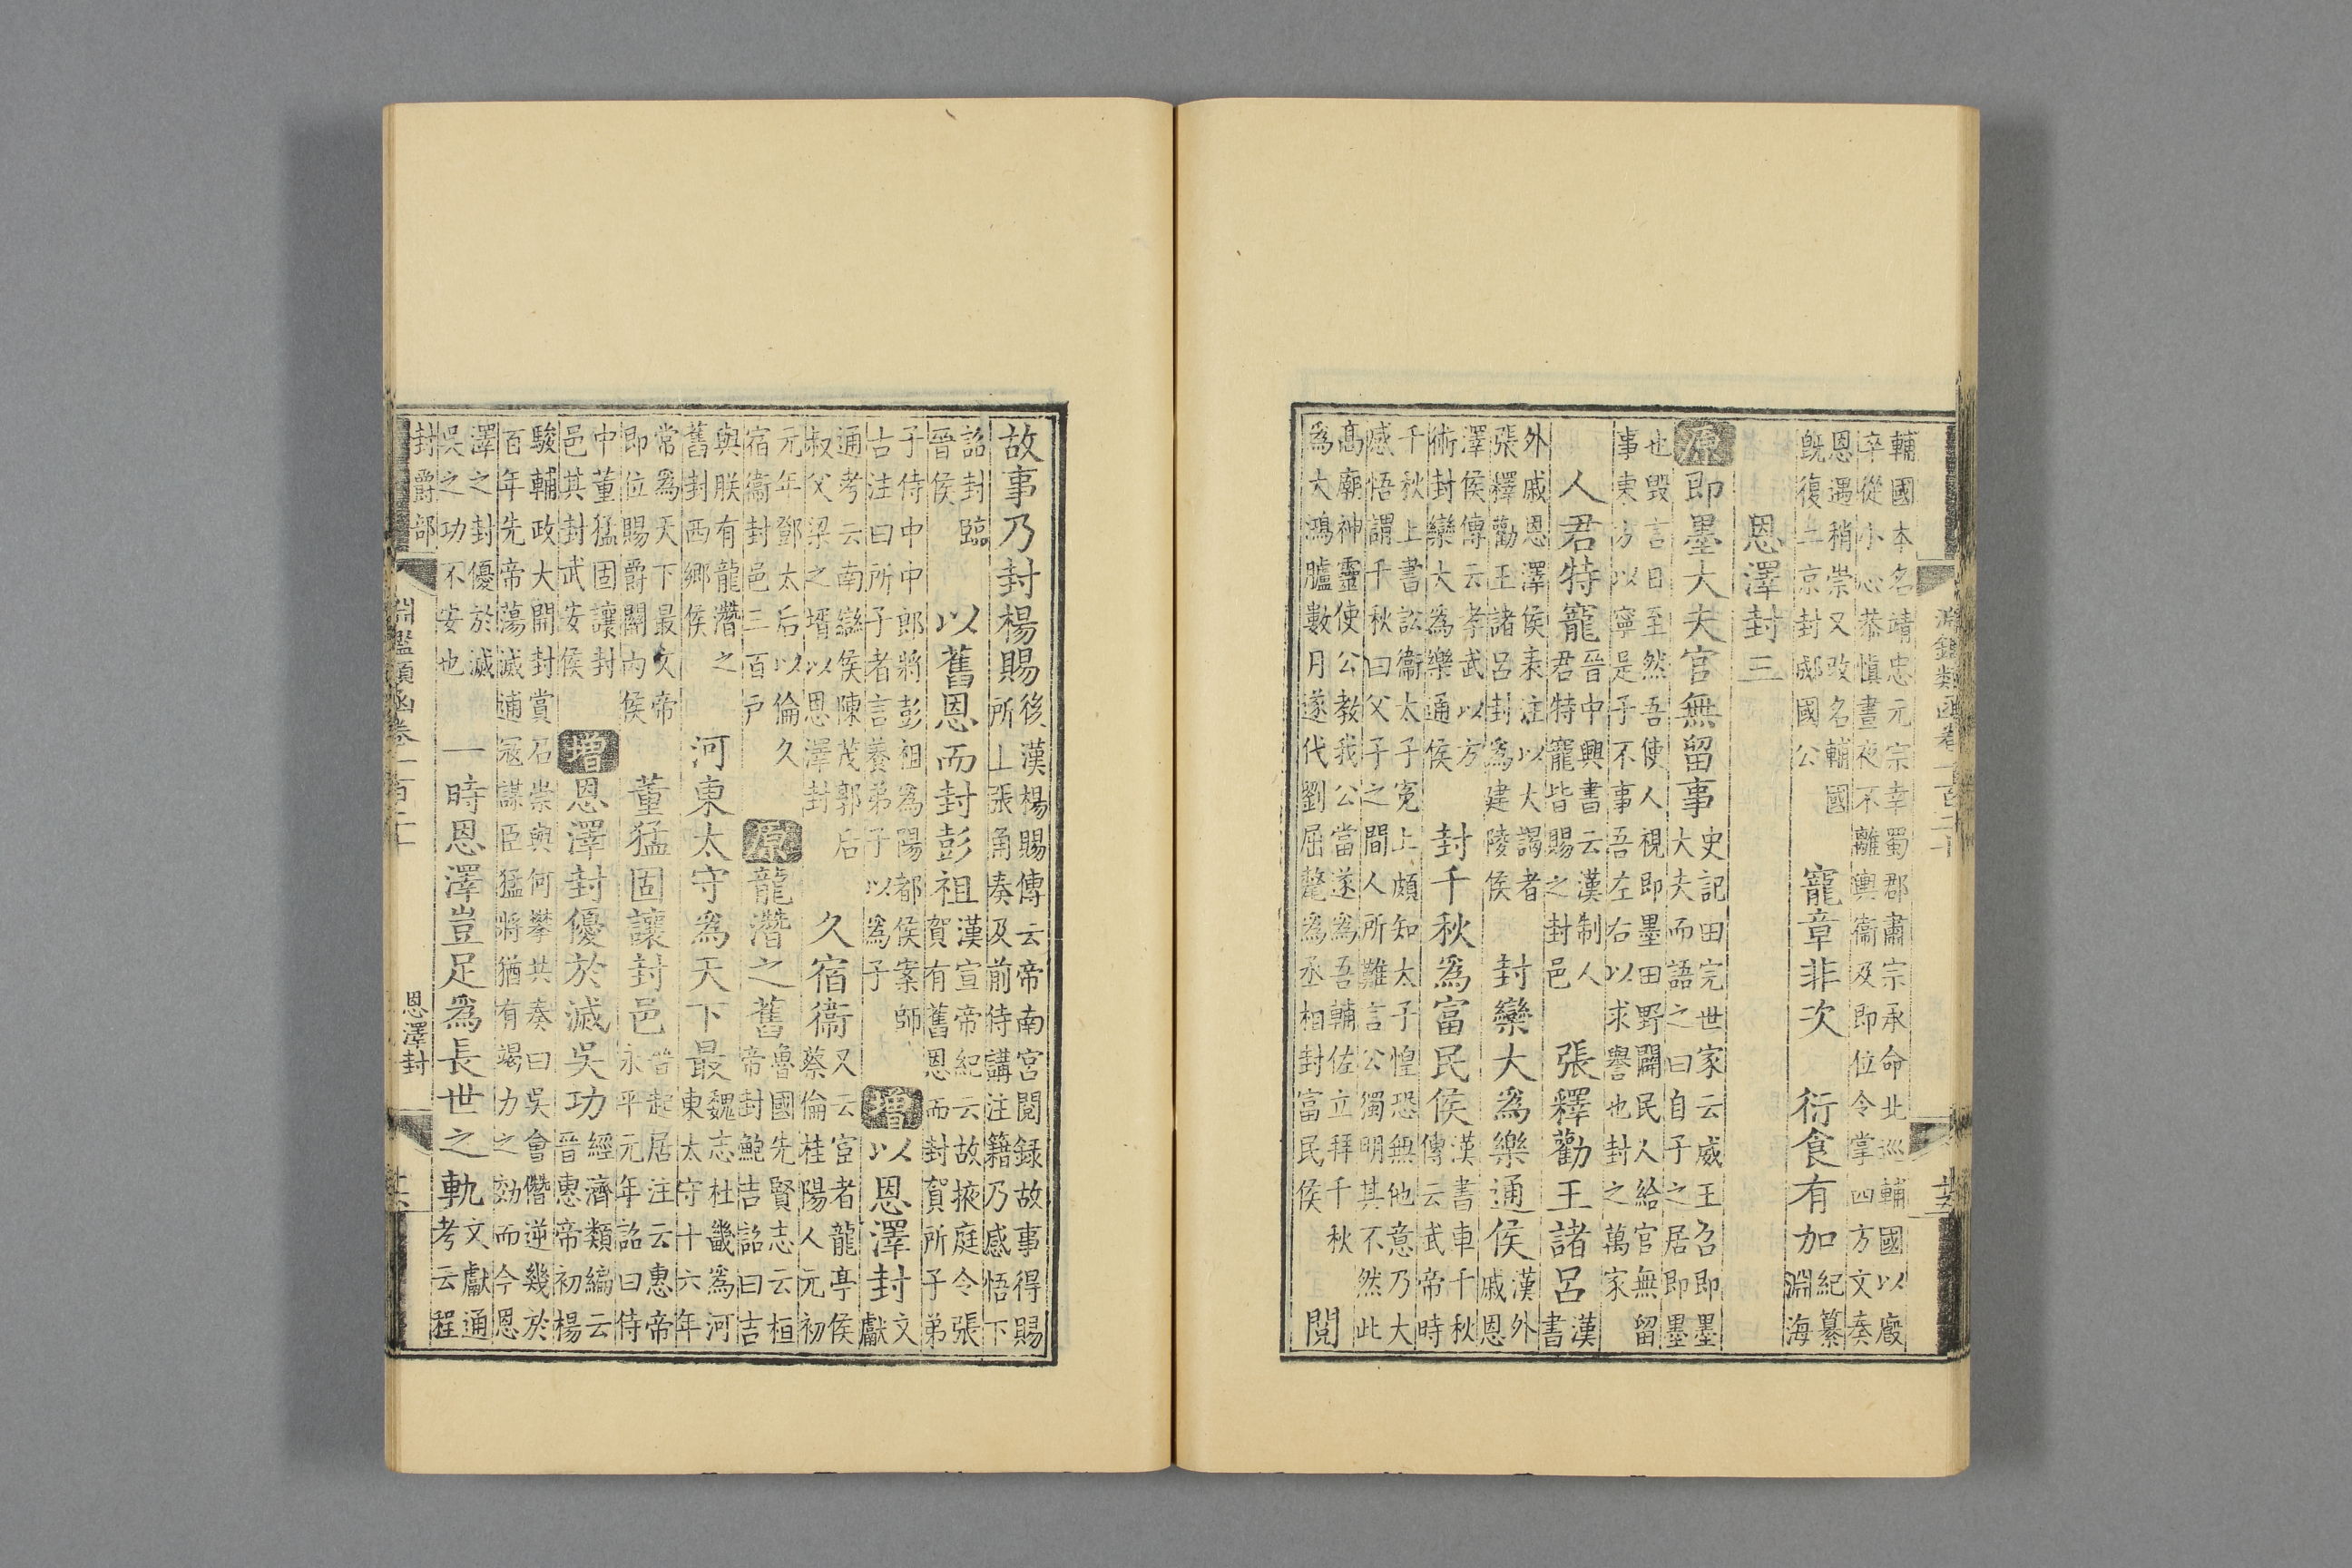 淵鑑類函卷一百二十
輔國本名靖忠元宗幸蜀郡肅宗承命北巡輔國以廄
卒從小心恭慎晝夜不離輿衞及即位令掌四方文奏
恩遇稍崇又改名輔國
旣復二京封郕國公
寵章非次 衍食有加
紀纂
淵海
恩澤封三
原 即墨大夫官無留事
史記田完世家云威王召即墨
大夫而語之曰自子之居即墨
也毁言日至然吾使人視即墨田野闢民人給官無留
事東方以寧是子不事吾左右以求譽也封之萬家
人君特寵
晉中興書云漢制人
君特寵皆賜之封邑
張釋勸王諸呂
漢
書
外戚恩澤侯表注以大謁者
張釋勸王諸呂封爲建陵侯
封欒大爲樂通侯
漢外
戚恩
澤侯傳云孝武以方
術封欒大為樂通侯
封千秋爲富民侯
漢書車千秋
傳云武帝時
千秋上書訟衞太子寃上頗知太子惶恐無他意乃大
感悟謂千秋曰父子之間人所難言公獨明其不然此
高廟神靈使公教我公當遂爲吾輔佐立拜千秋
爲大鴻臚數月遂代劉屈氂爲丞相封富民侯
閲
故事乃封楊賜
後漢楊賜傳云帝南宮閲録故事得賜
所上張角奏及前侍講注籍乃感悟下
詔封臨
晉侯
以舊恩而封彭祖
漢宣帝紀云故掖庭令張
賀有舊恩而封賀所子弟
子侍中中郎將彭祖爲陽都侯案師
古注曰所子者言養弟子以爲子
增 以恩澤封
文
獻
通考云南䜌侯陳茂郭后
叔父梁之壻以恩澤封
久宿衞
又云宦者龍亭侯
蔡倫桂陽人元初
元年鄧太后以倫久
宿衞封邑三百戸
原 龍潛之舊
魯國先賢志云桓
帝封鮑吉詔曰吉
與朕有龍潛之
舊封西鄉侯
河東太守爲天下最
魏志杜畿爲河
東太守十六年
常爲天下最文帝
即位賜爵關內侯
董猛固讓封邑
晉起居注云惠帝
永平元年詔曰侍
中董猛固讓封
邑其封武安侯
增 恩澤封優於滅吳功
經濟類編云
晉惠帝初楊
駿輔政大開封賞石崇與何攀共奏曰吳會僭逆幾於
百年先帝蕩滅逋寇謀臣猛將猶有竭力之効而今恩
澤之封優於滅
吳之功不安也
一時恩澤豈足爲長世之軌
文獻通
考云程
封爵部
淵鑑類函卷一百二十
恩澤封